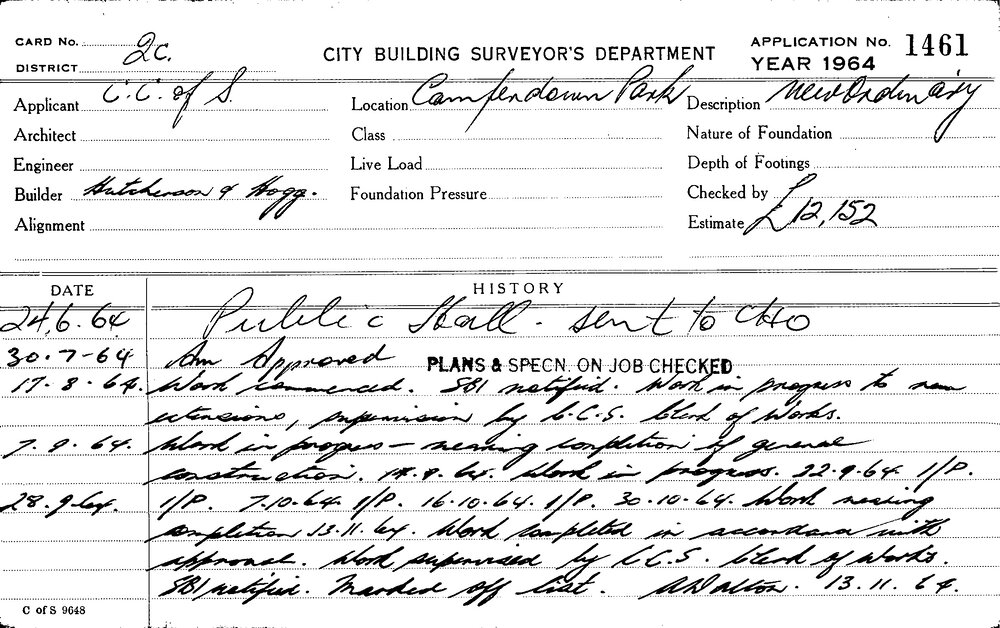 CARD No. 2c.
DISTRICT
CITY BUILDING SURVEYOR'S DEPARTMENT
APPLICATION No. 1461
YEAR 1964
Applicant C.C. of S.
Location Campendown Park
Description New Ordinary
Architect
Class
Nature of Foundation
Engineer
Live Load
Depth of Footings
Builder Hutcherson & Hogg.
Foundation Pressure
Checked by
Estimate £12,152
Alignment
DATE HISTORY
24.6.64 Public Hall. sent to
30-7-64 Approved PLANS & SPECN. ON JOB CHECKED
17.8.64. Work commenced. SBI notified. Work in progress to new
extensions, supervision by C.C.S. Clerk of Works.
7.9.64. Work in progress — nearing completion of general
construction. 14.9.64. Work in progress. 22.9.64. I/P.
28.9.64. I/P. 7.10.64. I/P. 16.10.64. I/P. 30.10.64. Work nearing
completion 13.11.64. Work completed in accordance with
approval. Work supervised by C.C.S. Clerk of Works.
SBI notified. Marked off list. ADalton. 13.11.64.
C of S 9648